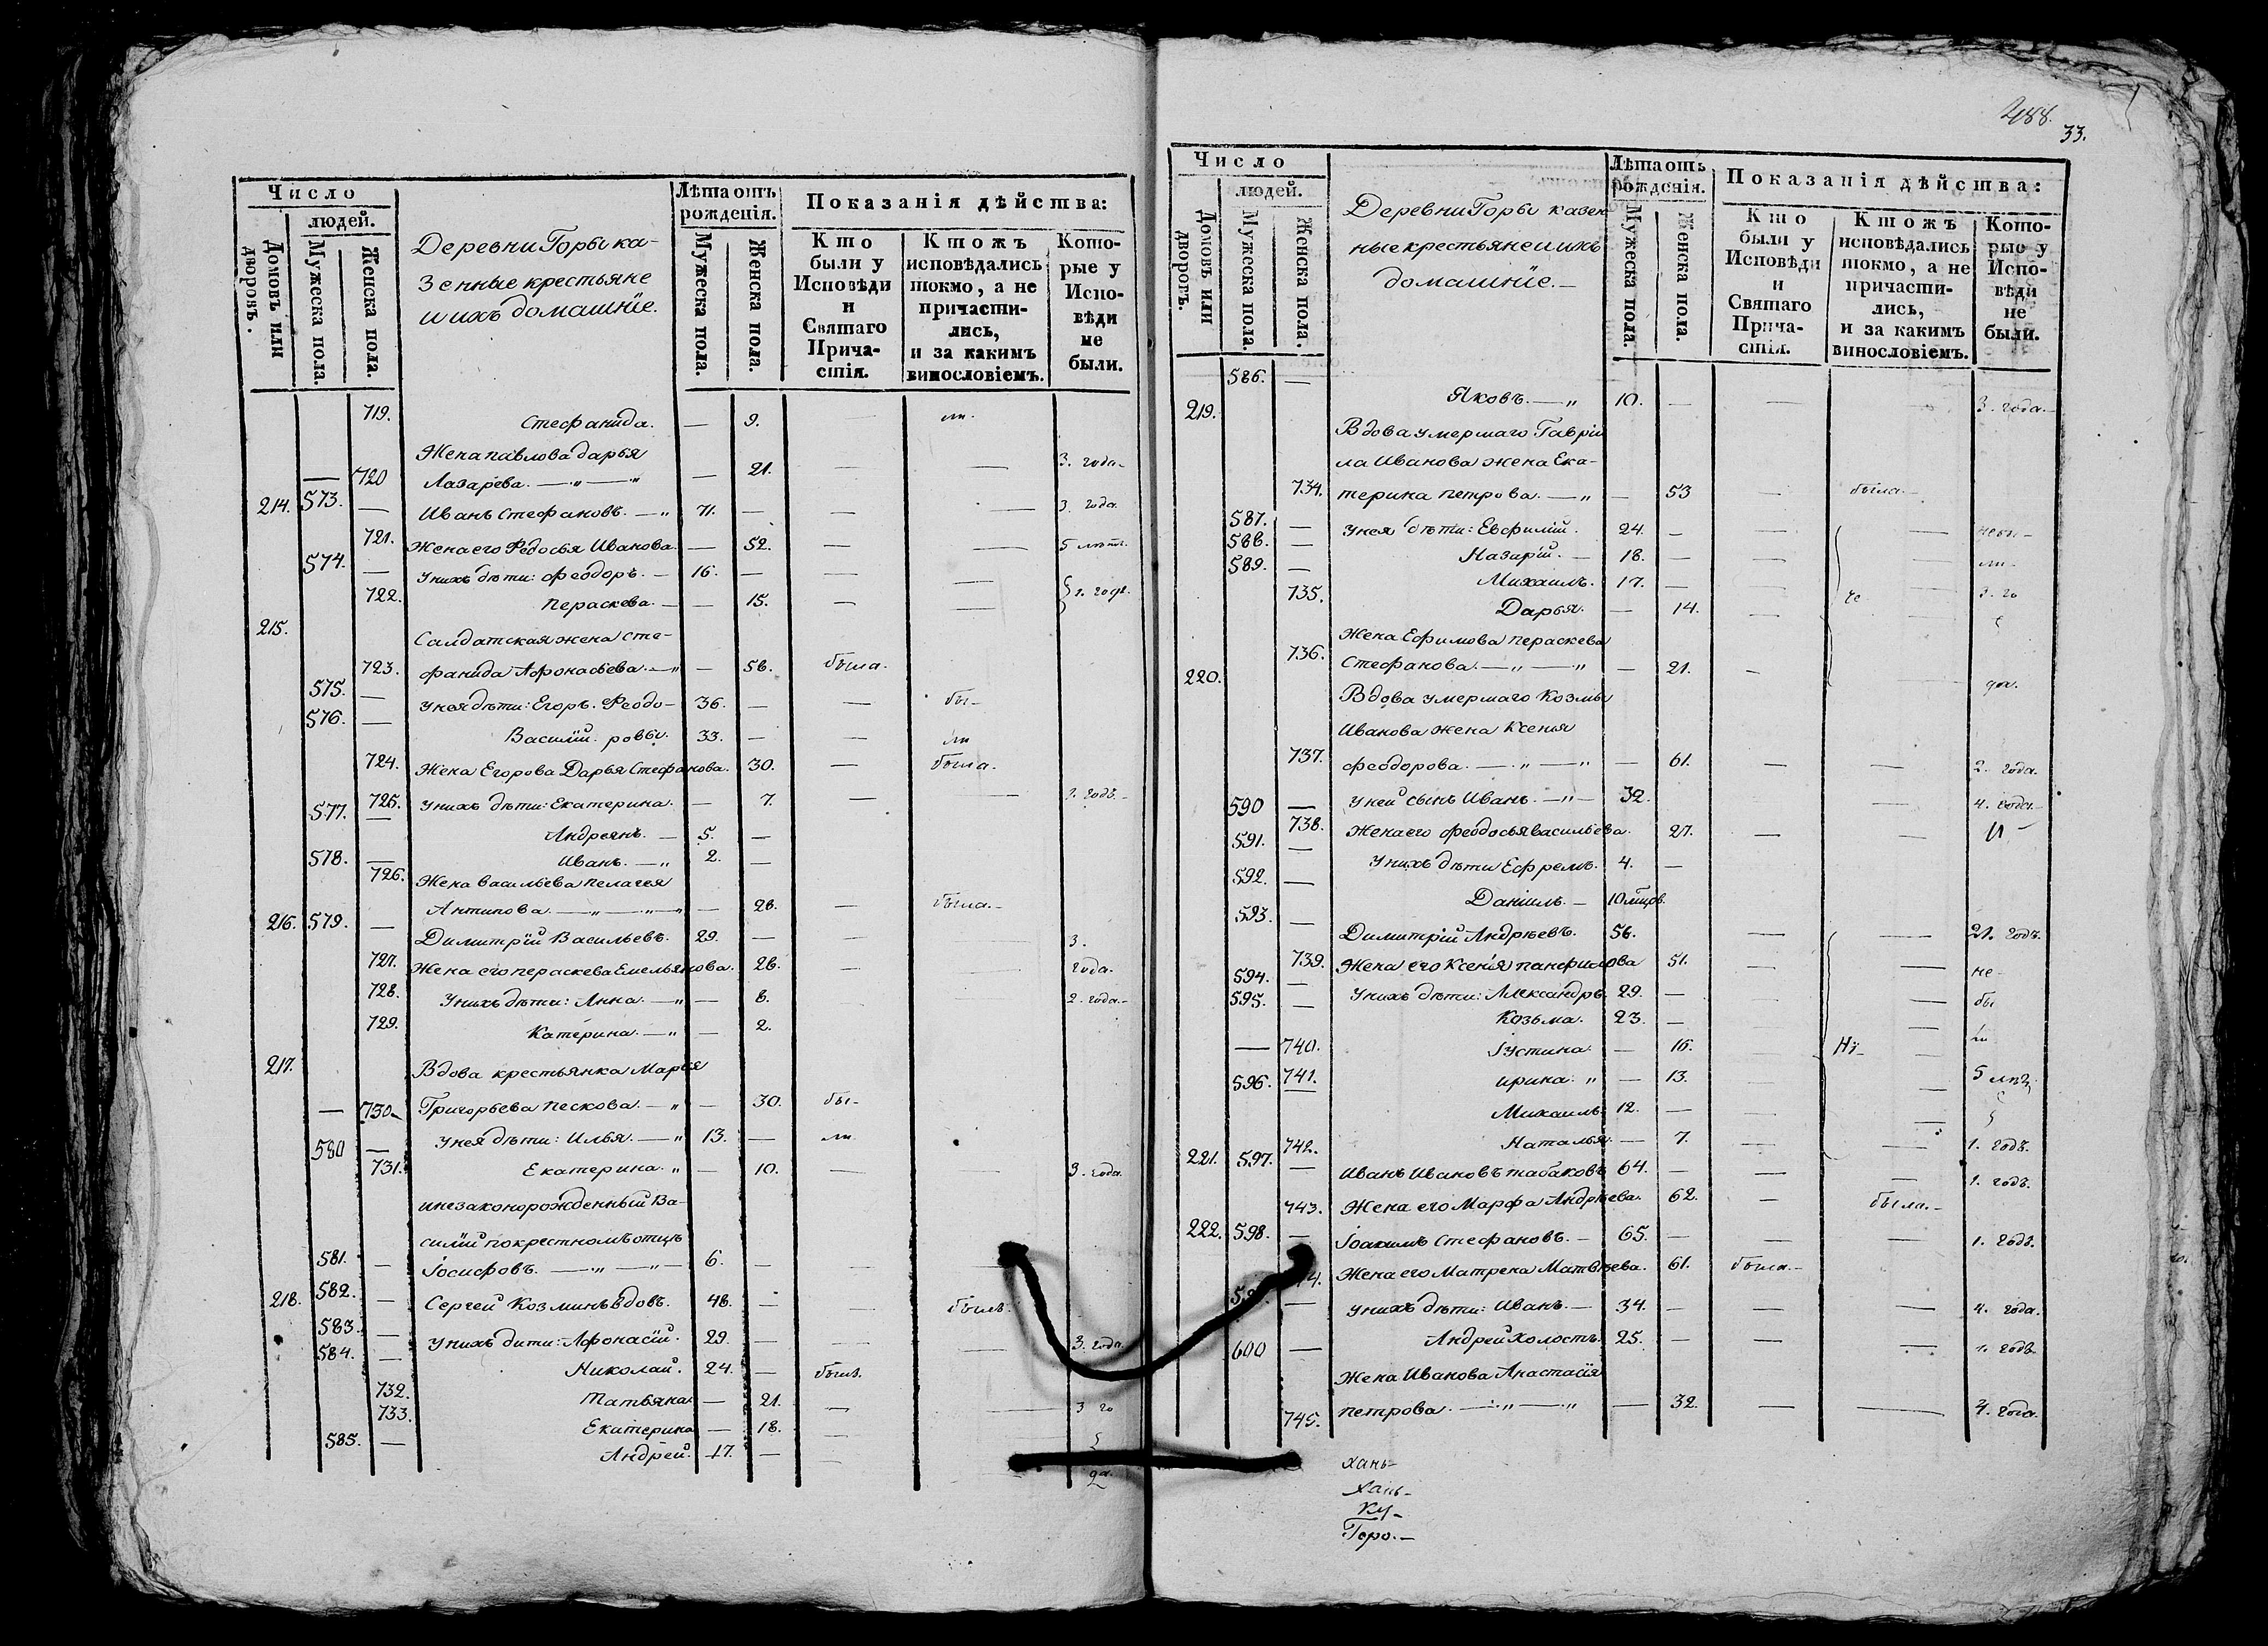 Число
людей.
Домовъ или дворовъ.
Мужеска пола.
Женска пола.
Деревни Горы ка-
зенные крестьяне
и ихъ домашніе.
Лѣта отъ рожденія.
Мужеска пола.
Женска пола.
Показанія дѣйства:
Кто были у Исповѣди и Святаго Причастія.
Ктожъ исповѣдались токмо, а не причастились, и за какимъ винословіемъ.
Которые у Исповѣди не были.
719. Стефанида. — 9. — ли.
Жена павлова дарья
— 720 Лазарева. — „ — „ — 21. — — 3. года.
214. 573. — Иванъ Стефановъ. — „ 71. — — — 3. года.
721. Жена его Федосья Иванова. — 52. — — 5 лѣтъ.
574. — У нихъ дѣти: Феодоръ. — 16. — — —
722. Пераскева. — — 15. — —
215. Салдатская жена Сте-
723. фанида Афонасьева. — „ — 56. была.
575. — У нея дѣти: Егоръ. Феодо- 36. — — бы-
576. — Василій. ровы. 33. — — ли
724. Жена Егорова Дарья Стефанова. 30. — была.
725. У нихъ дѣти: Екатерина. — 7. — —
577. — Андреянъ. — 5. —
578. — Иванъ. — „ 2. —
726. Жена васильева пелагея
Антипова. — „ — „ — „ — 28. — была.
216. 579. — Димитрій Васильевъ. 29. — — 3.
727. Жена его пераскева Емельянова. 26. — — года.
728. У нихъ дѣти: Анна. — „ — 8. 2. года.
729. Катерина. — „ — 2.
217. Вдова крестьянка Марья
— 730 Григорьева пескова. — „ — 30. бы-
580 — У нея дѣти: Илья. — „ 13. — ли
731. Екатерина. „ — 10. — — 3. года.
и незаконорожденный Ва-
силій по крестномъ отцѣ
581. — Іосифовъ. — „ — „ — 6. — —
218. 582. — Сергей Козминъ вдовъ. 48. — — былъ.
583. — У нихъ дити: Афонасій. 29. — — — 3. года.
584. — Николай. 24. — былъ.
732. Татьяна. — 21. — — 3 го
733. Екатерина — 18. —
585. — Андрей. 17. — — да.
488.
33.
Число
людей.
Домовъ или дворовъ.
Мужеска пола.
Женска пола.
Деревни Горы казен
ные крестьяне и ихъ
домашніе. —
Лѣта отъ рожденія.
Мужеска пола.
Женска пола.
Показанія дѣйства:
Кто были у Исповѣди и Святаго Причастія.
Ктожъ исповѣдались токмо, а не причастились, и за какимъ винословіемъ.
Которые у Исповѣди не были.
586. — Яковъ. — „ 10. — — — 3. года.
219. Вдова умершаго Гаврі
ла Иванова жена Ека-
734. терина петрова. — „ — 53 — была.
587. — У нея дѣти: Евфимій. 24. — — —
588. — Назарій. — 18. — — — ли
589. — Михаилъ. 17. —
735. Дарья. — 14. —
Жена Ефимова пераскева
736. Стефанова. — „ — „ — 21. —
220. Вдова умершаго Козмы
Иванова жена Ксенья
737. феодорова. — „ — „ — 61. — — 2. года.
590 — У ней сынъ Иванъ. — „ — 32. — 4. года.
738. Жена его феодосья васильева. 27. — — и
591. — У нихъ дѣти Ефремъ. 4. —
592. — Даніилъ. — 10
593. — Димитрій Андреевъ. 56. — — 21. годъ.
739. Жена его Ксенія панфилова 51. — — не-
594. — У нихъ дѣти: Александръ. 29. — — — бы
595. — Козьма. 23. — —
— 740. Іустина. — 16. — —
741. ирина. „ — 13. — — 5 лѣт
596. — Михаилъ. 12. — —
742. Наталья. — 7. — — 1. годъ.
221. 597. — Иванъ Ивановъ табаковъ 64. — — — 1. годъ.
743. Жена его Марфа Андреева. 62. — была.
222. 598. — Іоакимъ Стефановъ. — 65. — — — 1. годъ.
Жена его Матрена Матвѣева. 61. была.
— У нихъ дѣти: Иванъ. — 34. — — — 4. года.
600 — Андрей холостъ. 25. — — — 1. годъ.
Жена Иванова Анастасія
745. петрова. — „ — „ — 32. — — 4. года.
хань-
хань-
Ку-
Горо. —